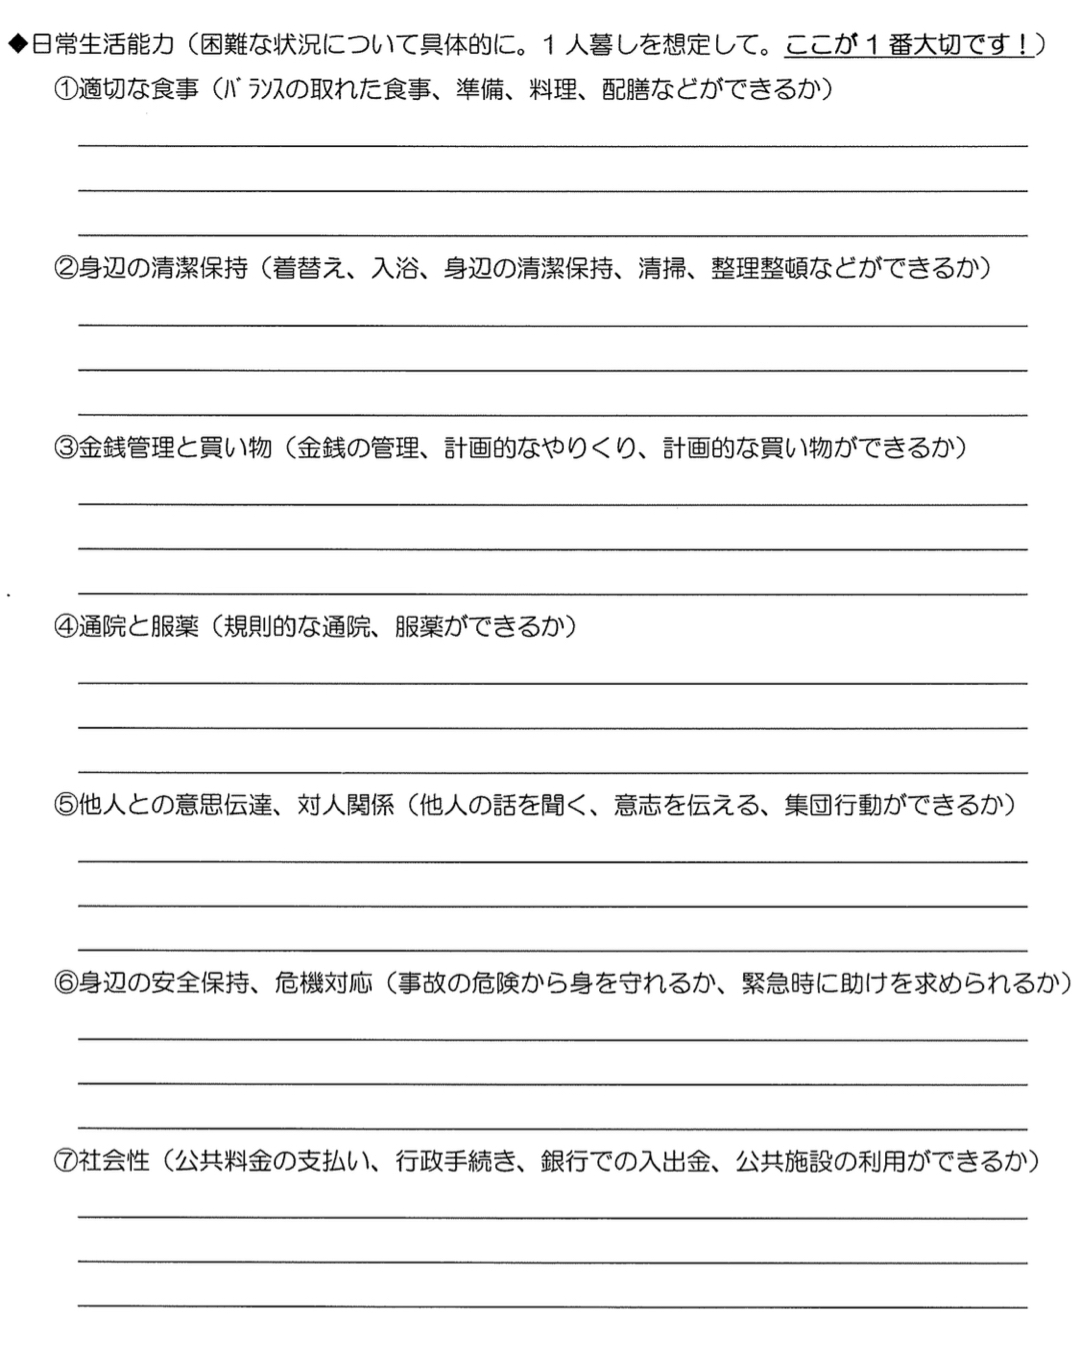 ◆日常生活能力（困難な状況について具体的に。１人暮しを想定して。ここが１番大切です！）
①適切な食事（ﾊﾞﾗﾝｽの取れた食事、準備、料理、配膳などができるか）
②身辺の清潔保持（着替え、入浴、身辺の清潔保持、清掃、整理整頓などができるか）
③金銭管理と買い物（金銭の管理、計画的なやりくり、計画的な買い物ができるか）
④通院と服薬（規則的な通院、服薬ができるか）
⑤他人との意思伝達、対人関係（他人の話を聞く、意志を伝える、集団行動ができるか）
⑥身辺の安全保持、危機対応（事故の危険から身を守れるか、緊急時に助けを求められるか）
⑦社会性（公共料金の支払い、行政手続き、銀行での入出金、公共施設の利用ができるか）